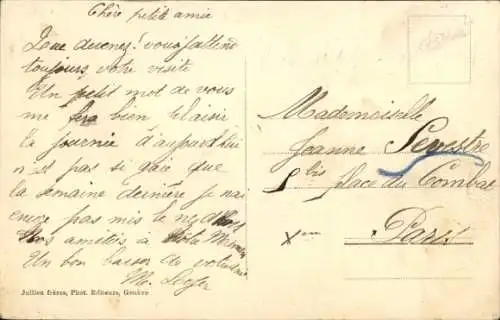 Chère petite amie
Que devenez vous j'attend
toujours votre visite
Un petit mot de vous
me fera bien plaisir
la journée d'aujourd'hui
n'est pas si gaie que
la semaine dernière je n'ai
encore pas mis le nez
amitiés à
Un bon baiser de
M.
Mademoiselle
Jeanne Sevestre
5 bis place du Combat
Xème Paris
Jullien frères, Phot. Editeurs, Genève